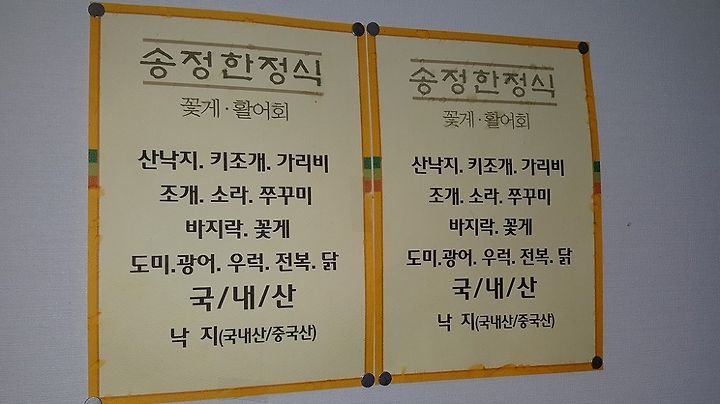 송정한정식
꽃게·활어회
산낙지. 키조개. 가리비
조개. 소라. 쭈꾸미
바지락. 꽃게
도미.광어. 우럭. 전복. 닭
국/내/산
낙 지(국내산/중국산)
송정한정식
꽃게·활어회
산낙지. 키조개. 가리비
조개. 소라. 쭈꾸미
바지락. 꽃게
도미.광어. 우럭. 전복. 닭
국/내/산
낙 지(국내산/중국산)